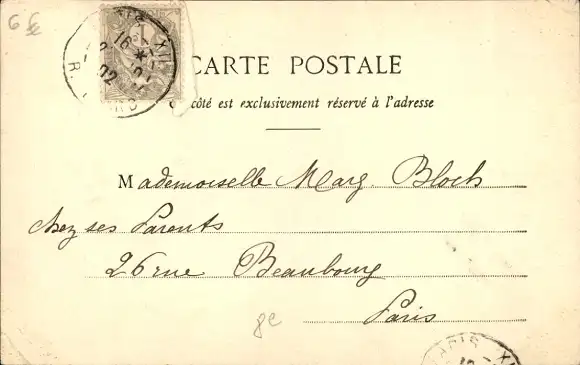 PARIS XII
16
02
CARTE POSTALE
côté est exclusivement réservé à l'adresse
Mademoiselle Marg. Bloch
chez ses Parents
26 rue Beaubourg
8e
Paris
PARIS XI